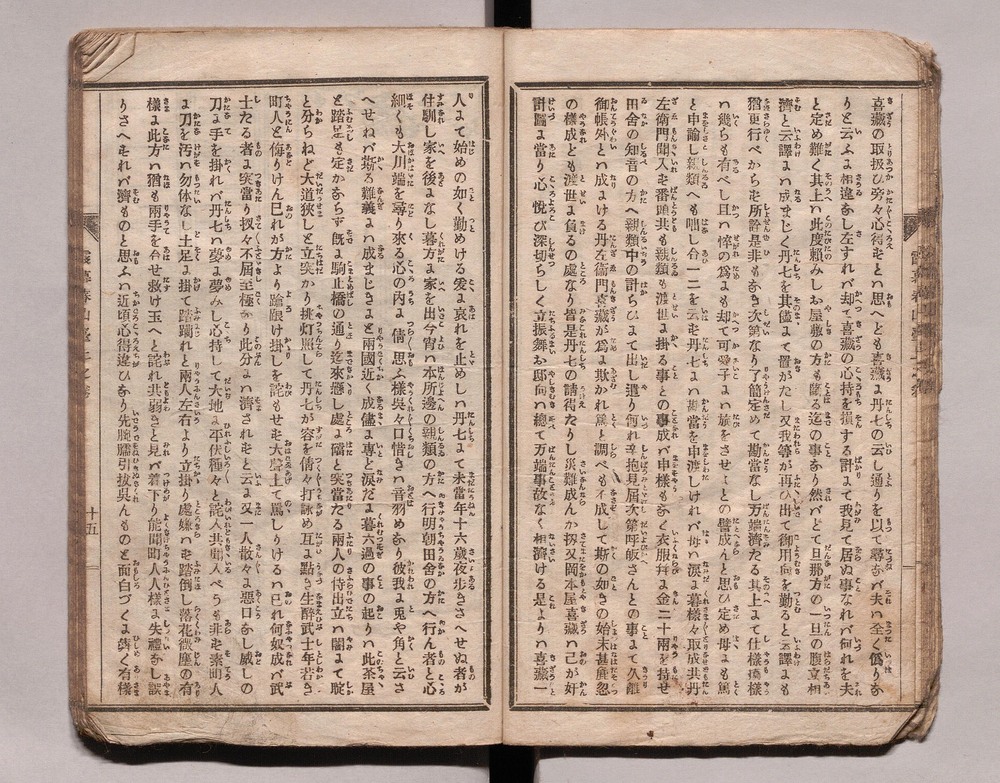 喜藏の取扱ひ旁々心得ずとハ思へども喜藏ハ丹七の云し通りを以て尋ねバ夫ハ全く僞りな
りと云ふよ相違なし左すれバ却って喜藏の心持を損する計よて我見て居ぬ事なれバ何れを夫
と定め難く其上ハ此度賴みしお屋敷の方も願る迄の事なり然ればとて旦那方の一旦の腹立相
濟と云譯よハ成まじく丹七を其儘よて置がたし又我等が再び出て御用向を勤ると云譯よも
猶更行べからず所詮是非もなき次第なり了簡定めて勘當なし万端濟たる其上よて仕樣模樣
ハ幾らも有べし且ハ忰の爲よも却つて可愛子よハ旅をさせよとの譬成んと思ひ定め母よも篤
と申諭し親類へも咄し合一二を云ず丹七よハ勘當を申渡しければ母ハ涙よ暮樣々取成共丹
左衛門聞入ず番頭共も親類も渡世よ掛る事との事成バ申樣もなく衣服幷よ金二十兩を持せ
田舍の知音の方へ親類中の計らひよて出し遣り何れよも抱見屆次第呼戾さんとの事よて久離
御帳外とハ成よける丹左衛門喜藏が爲よ欺かれ篤と調べもイ成して斯の如きの始末甚麁忽
の樣成ども渡世よ負るの處なり皆是丹七の請得たりし災難成んか扨又岡本屋喜藏ハ己が好
計圖よ當り心よ悅び深切らしく立振舞お邸向ハ總て万端事故なく相濟ける是よりハ喜藏一
人よて始めの如く勤めける爰よ哀れを止めしハ丹七よて未當年十六歳夜歩きさへせぬ者が
住馴し家を後よなし暮方よ家を出今宵ハ本所邊の親類の方へ行明朝田舍の方へ行ん者と心
細くも大川端を辿り來る心の内よ倩々思ふ樣呉々口惜きハ音羽めなり彼我よ兎や角と云さ
へせねバ斯る難義よハ成まじきよと兩國近く成儘よ專と涙だよ暮六過の事の起りハ此茶屋
と踏足も定かならず既よ駒止橋の通り迄來懸し處よ礑と突當たる兩人の侍出立ハ闇よて聢
と分らねど大道狹しと立突かり挑灯照らして丹七が容を倩々打詠め互よ點き生醉武士年若き
町人と侮りけん已れが方より踉蹌け掛りを詫もせず大聲上て罵しりけるハ已れ何奴成バ武
士たる者よ突當り扨々不屆至極なり此分よハ濟されずと云よ又一人散々よ惡口なし威しの
刀よ手を掛れバ丹七ハ夢よ夢みし心持して大地よ平伏種々と詫入共聞入べうも非ず素町人
よ刀を汚すハ勿体なし土足よ掛て踏躙れと兩人左右より立掛り處嫌ハず踏倒し落花微塵の有
樣よ此方ハ猶も兩手を合せ救け玉へと詫れ共弱きと見バ着下り能聞町人人樣よ失禮なし誤
りさへすれバ濟ものと思ふハ近頃心得違ひなり先腕臑引拔呉んものと面白づくよ嬲く有樣
十五